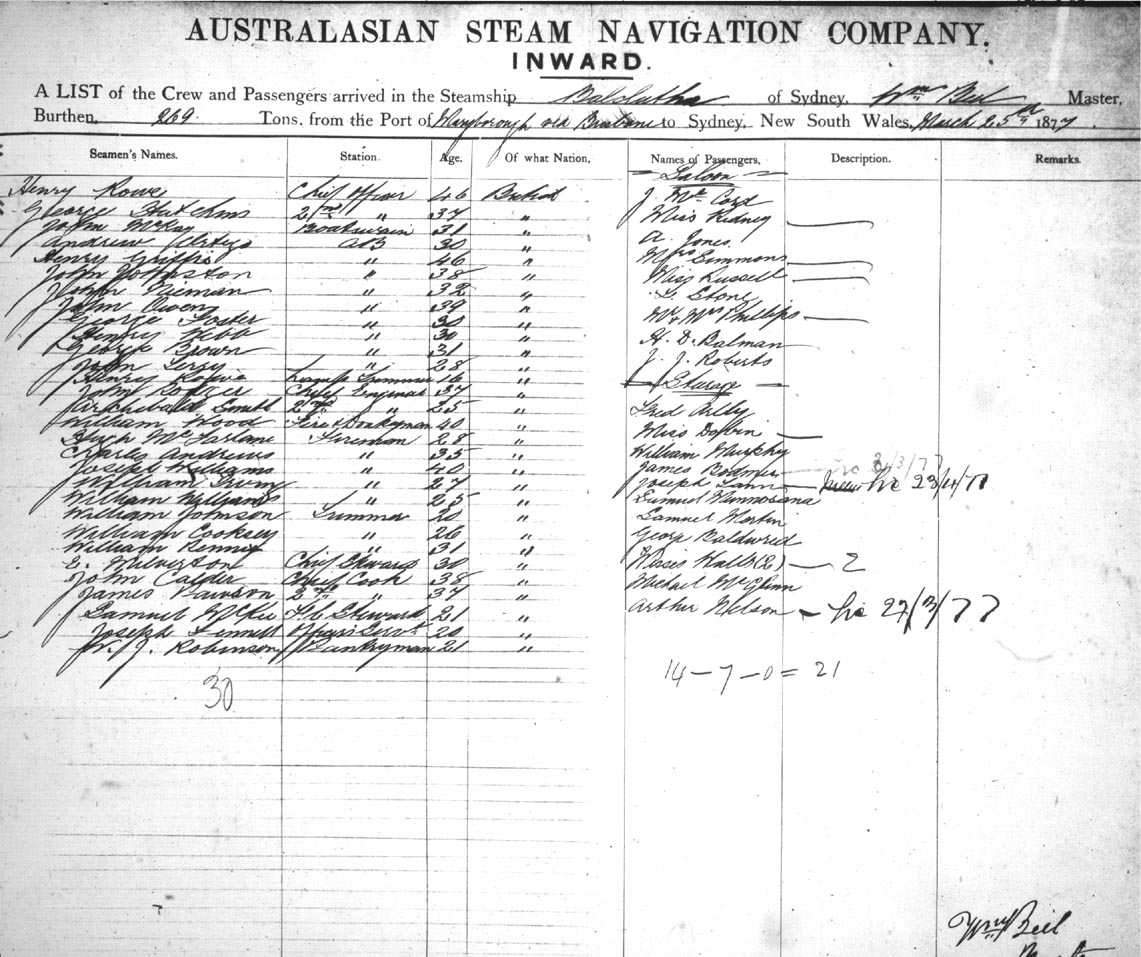 AUSTRALASIAN STEAM NAVIGATION COMPANY.
INWARD.
A LIST of the Crew and Passengers arrived in the Steamship Balclutha of Sydney, Wm Beil Master,
Burthen, 269 Tons, from the Port of Maryborough via Brisbane to Sydney, New South Wales, March 25th 1877
Seamen's Names. Station. Age. Of what Nation, Names of Passengers, Description. Remarks.
Saloon
Henry Rowe Chief Officer 46 British J. McCord
George Hutchins 2nd " 37 " Miss Kidney
John McKay Boatswain 31 " A. Jones
Andrew AB 30 " Mrs Simmons
Henry Griffis " 46 " Miss Russell
John Johnston " 38 " Stone
John Nieman " 32 " Mr & Mrs Phillips
John Owen " 39 " H. D. Balman
George Foster " 30 " J. J. Roberts
Henry Webb " 30 "
George Brown " 31 "
John Terry " 28 "
Henry Rowe Lamp Trimmer 16 " Sterage
John Rodger Chief Engineer 37 "
Archibald Smith 2nd " 25 " Fred
William Wood Fire & Donkyman 40 " Miss Dobbin
Hugh McFarlane Fireman 28 " William Murphy
Charles Andrews " 35 " James
Joseph Williams " 40 " Joseph 23/4/77
William Irving " 27 " Samuel
William Williams " 25 " Samuel Martin
William Johnson Trimmer 20 " George Baldwred
William Cooksey " 26 " Misses Halls (2) — 2
William Renny " 31 " Michael McGlinn
E. Milverton Chief Steward 30 " Arthur Nelson 27/3/77
John Calder Chief Cook 38 "
James Pawson 2nd " 37 "
Samuel McKee F.C Steward 21 "
Joseph Fennell Officers Servt 20 "
W. J. Robinson Pantryman 21 "
14 – 7 – 0 = 21
30
Wm Beil